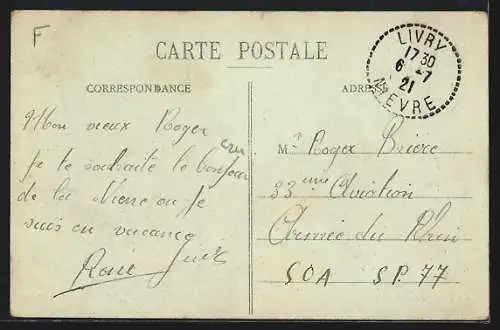 F
CARTE POSTALE
LIVRY
17 30
6 -7
21
NIEVRE
CORRESPONDANCE
ADRESSE
Mon vieux Roger
Je te souhaite le bonjour
de la Nievre ou je
suis en vacance
René
Mr Roger Brière
33 eme Aviation
Armée du Rhin
SOA SP. 77